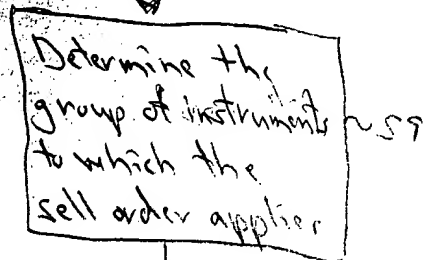 Determine the
group of instruments ~59
to which the
sell order applies